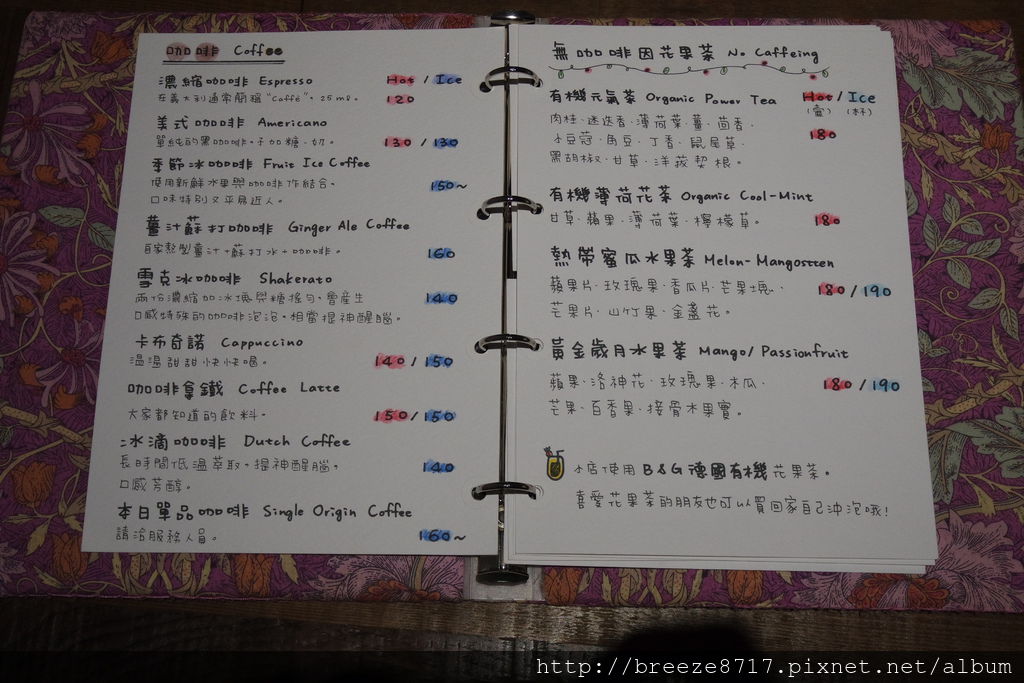 咖啡 Coffee
濃縮咖啡 Espresso Hot / Ice
在義大利通常簡稱"Caffé"。25 ml。 120
美式咖啡 Americano
單純的黑咖啡。不加糖、奶。 130 / 130
季節冰咖啡 Fruit Ice Coffee
使用新鮮水果與咖啡作結合。 150~
口味特別又平易近人。
薑汁蘇打咖啡 Ginger Ale Coffee
自家熬製薑汁+蘇打水+咖啡。 160
雪克冰咖啡 Shakerato
兩份濃縮加冰塊與糖搖勻。會產生 140
口感特殊的咖啡泡泡。相當提神醒腦。
卡布奇諾 Cappuccino
溫溫甜甜快快喝。 140 / 150
咖啡拿鐵 Coffee Latte
大家都知道的飲料。 150 / 150
冰滴咖啡 Dutch Coffee
長時間低溫萃取。提神醒腦。 140
口感芳醇。
本日單品咖啡 Single Origin Coffee
請洽服務人員。 160~
無咖啡因花果茶 No Caffeing
有機元氣茶 Organic Power Tea Hot / Ice
(壺) (杯)
肉桂、迷迭香、薄荷葉、薑、茴香、
小豆蔻、角豆、丁香、鼠尾草、 180
黑胡椒、甘草、洋菝契根。
有機薄荷花茶 Organic Cool-Mint
甘草、蘋果、薄荷葉、檸檬草。 180
熱帶蜜瓜水果茶 Melon-Mangostten
蘋果片、玫瑰果、香瓜片、芒果塊、 180 / 190
芒果片、山竹果、金盞花。
黃金歲月水果茶 Mango/ Passionfruit
蘋果、洛神花、玫瑰果、木瓜、 180 / 190
芒果、百香果、接骨木果實。
本店使用 B&G 德國有機花果茶。
喜愛花果茶的朋友也可以買回家自己沖泡哦!
http://breeze8717.pixnet.net/album